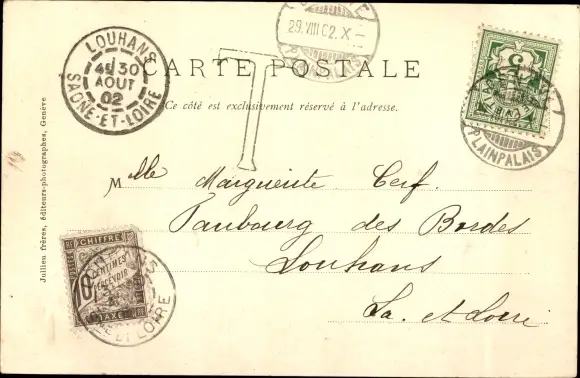 LOUHANS
4E 30
AOUT
02
SAONE-ET-LOIRE
29.VIII 02.X-
T
CARTE POSTALE
Ce côté est exclusivement réservé à l'adresse.
5
PLAINPALAIS
Mlle Marguerite Cerf.
Faubourg des Bordes
Louhans
Sa. et Loire
Jullien frères, éditeurs-photographes, Genève
CHIFFRE
10
CENTIMES
A PERCEVOIR
TAXE
ET LOIRE